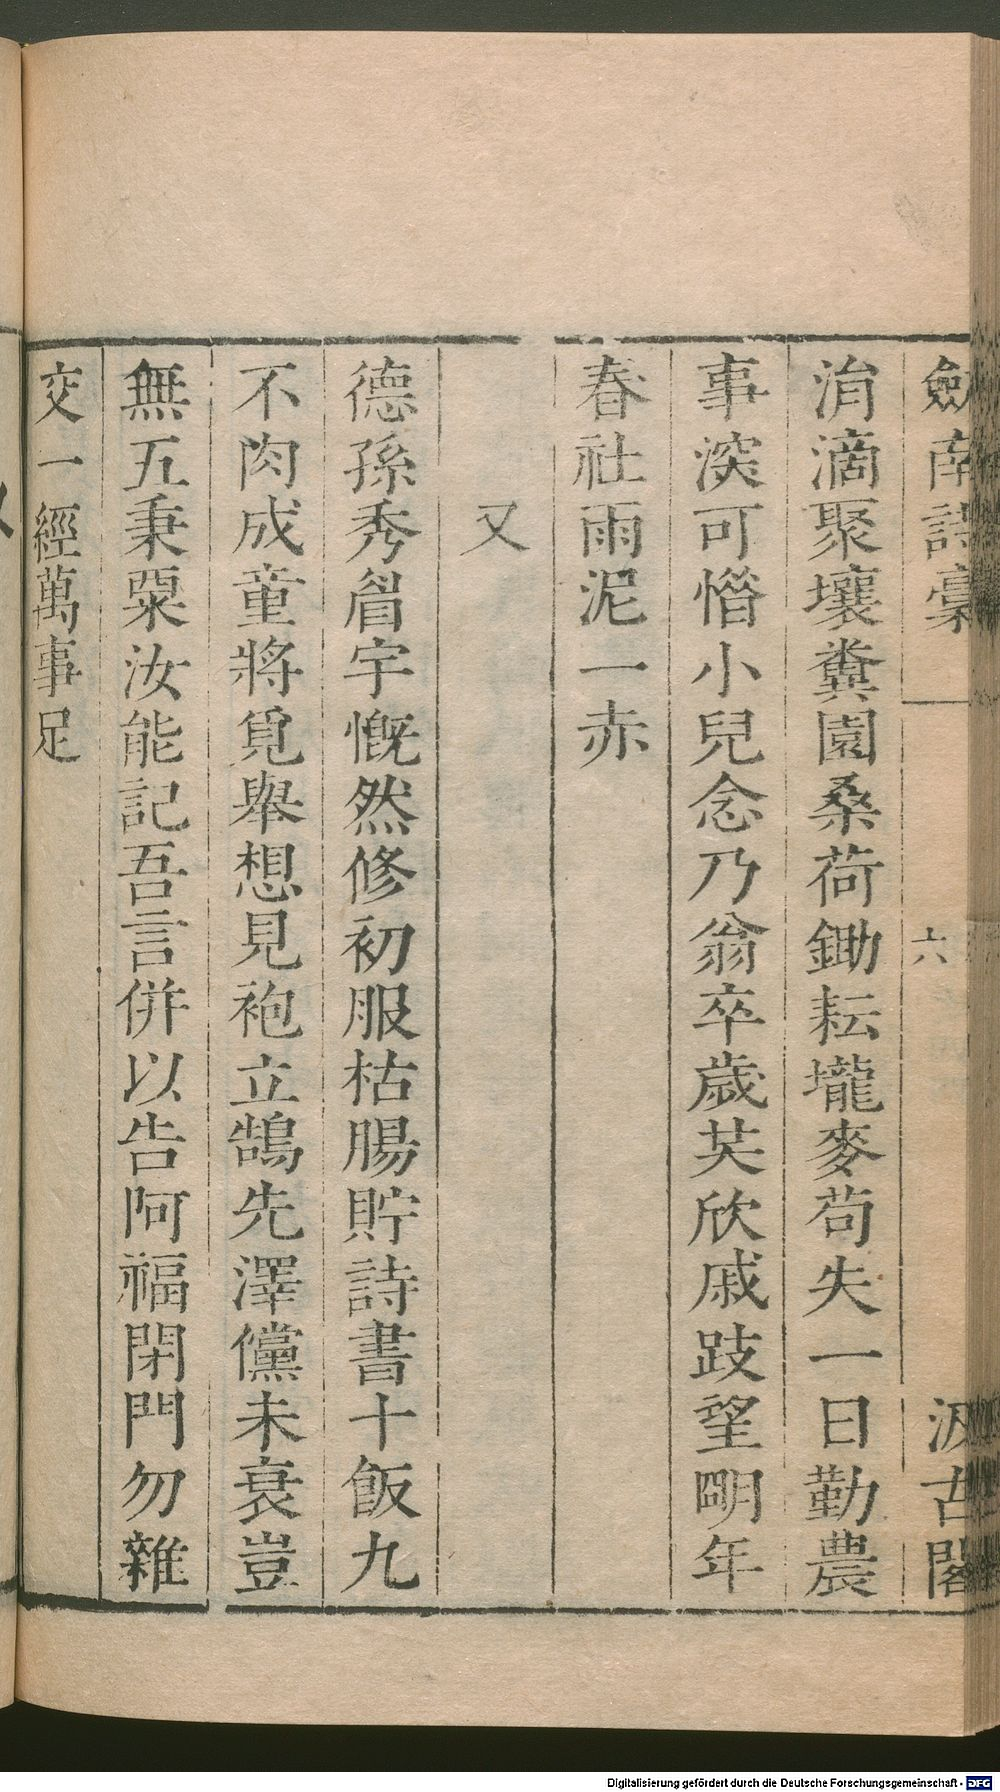 劒南詩稾 六 汲古閣
涓滴聚壤糞園桑荷鋤耘壠麥茍失一日勤農
事深可惜小兒念乃翁卒歲共欣戚跂望明年
春社雨泥一赤
又
德孫秀眉宇慨然修初服枯腸貯詩書十飯九
不肉成童將覓舉想見袍立鵠先澤儻未衰豈
無五秉粟汝能記吾言併以告阿福閉門勿雜
交一經萬事足
Digitalisierung gefördert durch die Deutsche Forschungsgemeinschaft - DFG